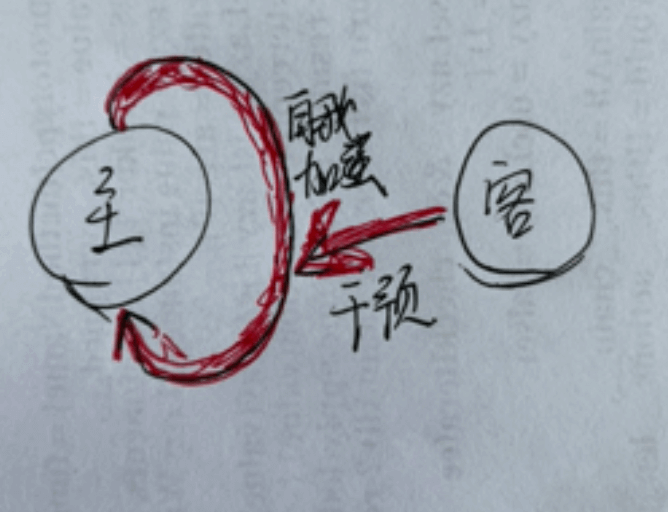 主
自我
加强
客
干预